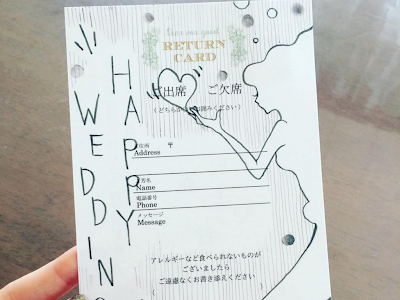 Dear our guest
RETURN
CARD
ご出席 ご欠席
HAPPY
WEDDING
ご住所 〒
Address
ご芳名
Name
電話番号
Phone
メッセージ
Message
アレルギーなど食べられないものが
ございましたら
ご遠慮なくお書き添えください